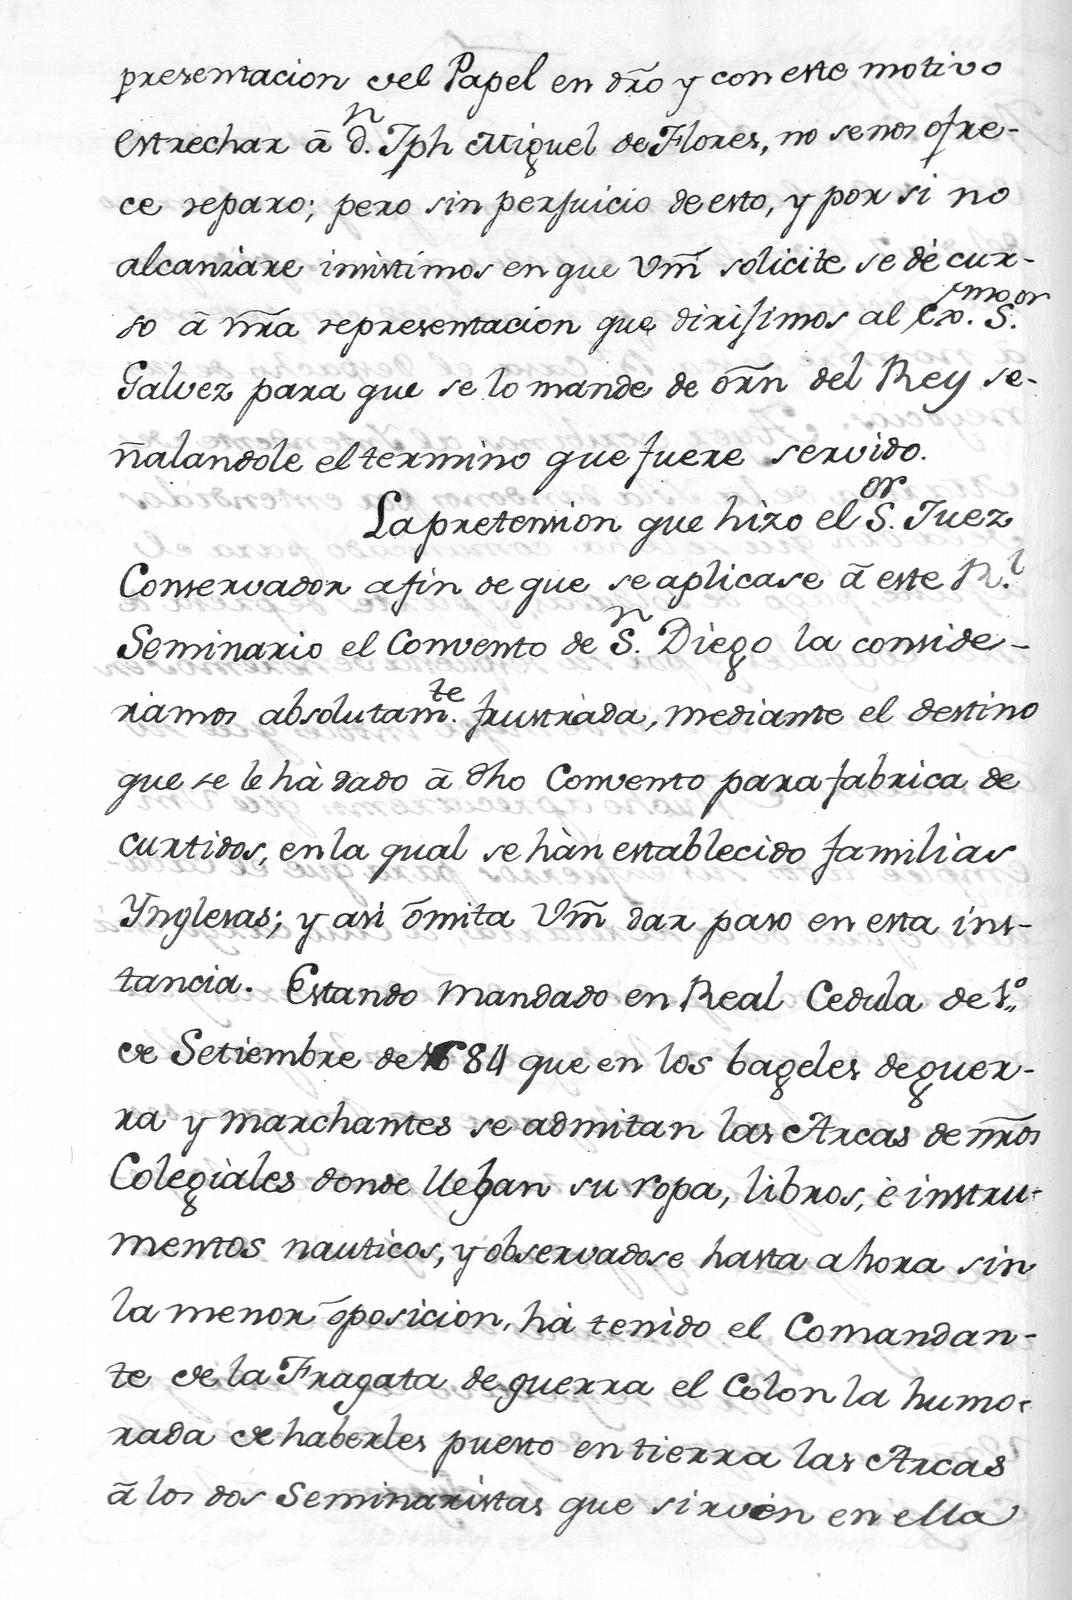 presentacion del Papel en dr̃o y con este motivo
estrechar â d.n Jph Miguel de Flores, no se nos ofre-
ce reparo; pero sin perjuicio de esto, y por si no
alcanzare insistimos en que Vm̃ solicite se dé cur-
so â nr̃a representacion que dirijimos al Exmo. S.or
Galvez para que se lo mande de orñ del Rey se-
ñalandole el termino que fuere servido.
La pretension que hizo el S.or Juez
Conservador afin de que se aplicase â este R.l
Seminario el Convento de S.n Diego la conside-
ramos absolutam.te frustrada, mediante el destino
que se le hà dado â dho Convento para fabrica de
curtidos, en la qual se hàn establecido familias
Ynglesas; y asi ōmita Vm̃ dar paso en esta ins-
tancia. Estando mandado en Real Cedula de 1.o
de Setiembre de 1684 que en los bageles de guer-
ra y marchantes se admitan las Arcas de nr̃os
Colegiales donde lleban su ropa, libros, è instru-
mentos nauticos, y observadose hasta ahora sin
la menor ōposicion, hà tenido el Comandan-
te de la Fragata de guerra el Colon la humo-
rada de haberles puesto en tierra las Arcas
â los dos Seminaristas que sirven en ella